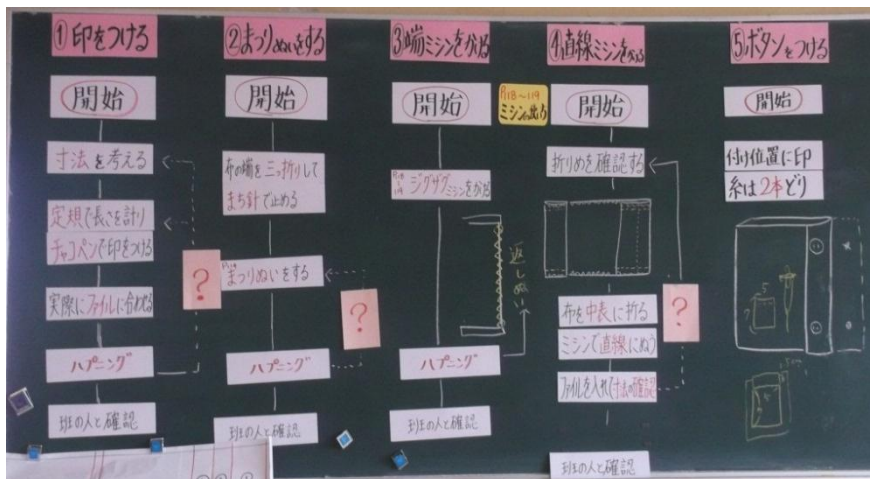 ①印をつける
開始
寸法を考える
定規で長さを計り
チャコペンで印をつける
実際にファイルに合わせる
ハプニング
班の人と確認
?
②まつりぬいをする
開始
布の端を三つ折りして
まち針で止める
まつりぬいをする
ハプニング
班の人と確認
?
③端ミシンをかける
開始
ジグザグミシンをかける
返しぬい
ハプニング
班の人と確認
P.118〜119
④直線ミシンをかける
開始
折りめを確認する
布を中表に折る
ミシンで直線にぬう
ファイルを入れて寸法の確認
班の人と確認
?
⑤ボタンをつける
開始
付け位置に印
糸は2本どり
5